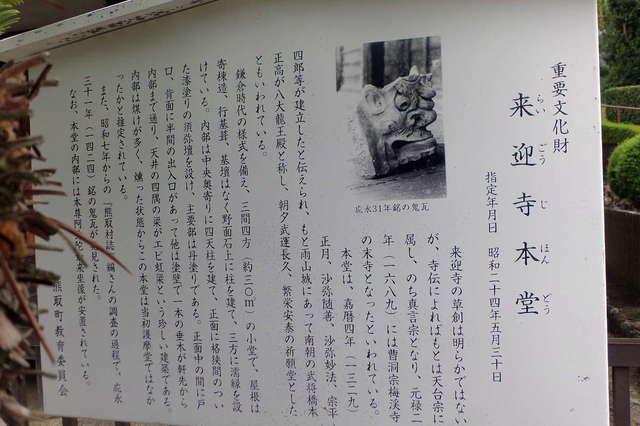 重要文化財
来迎寺本堂
らいごうじほんどう
指定年月日 昭和二十四年五月三十日
来迎寺の草創は明らかではない
が、寺伝によればもとは天台宗に
属し、のち真言宗となり、元禄二
年(一六八九)には曹洞宗梅渓寺
の末寺となったといわれている。
本堂は、嘉暦四年(一三二九)
正月、沙弥随善、沙弥妙法、宗平
四郎等が建立したと伝えられ、もと雨山城にあって南朝の武将橋本
正高が八大龍王殿と称し、朝夕武運長久、繁栄安泰の祈願堂とした
ともいわれている。
鎌倉時代の様式を備え、三間四方(約三〇㎡)の小堂で、屋根は
寄棟造、行基葺、基壇はなく野面石上に柱を建て、三方に濡縁を設
けている。内部は中央奥寄りに四天柱を建て、正面に格狭間のつい
た漆塗りの須弥壇を設け、主要部は丹塗りである。正面中の間に戸
口、背面に半間の出入口があって他は塗壁で一本の垂木が軒先から
内部まで通り、天井の四隅の梁がエビ虹梁という珍しい建築である。
内部は煤けが多く、燻った状態からこの本堂は当初護摩堂ではなか
ったかと推定されている。
また、昭和七年からの『熊取村誌』編さんの調査の過程で、応永
三十一年(一四二四)銘の鬼瓦が発見された。
なお、本堂の内部には本尊阿 来坐像が安置されている。
熊取町教育委員会
応永31年銘の鬼瓦